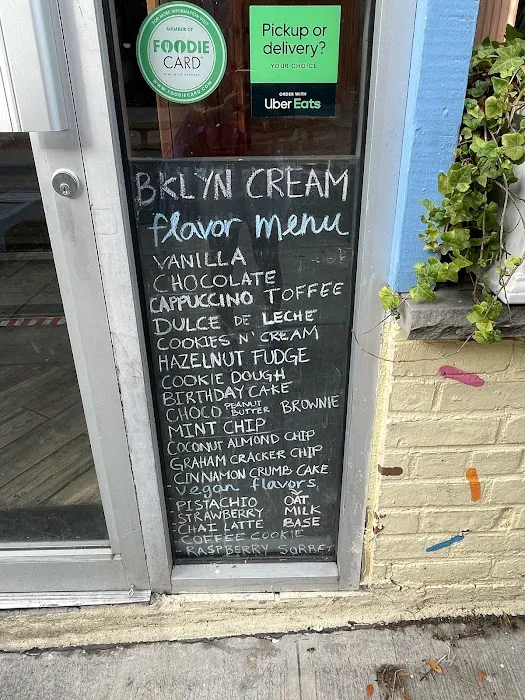 FOR MORE INFORMATION VISIT
MEMBER OF
FOODIE
CARD
WWW.FOODIECARD.COM
Pickup or
delivery?
YOUR CHOICE
ORDER WITH
Uber Eats
BKLYN CREAM
flavor menu
VANILLA
CHOCOLATE
CAPPUCCINO TOFFEE
DULCE DE LECHE
COOKIES N' CREAM
HAZELNUT FUDGE
COOKIE DOUGH
BIRTHDAY CAKE
CHOCO PEANUT BUTTER BROWNIE
MINT CHIP
COCONUT ALMOND CHIP
GRAHAM CRACKER CHIP
CINNAMON CRUMB CAKE
vegan flavors
PISTACHIO OAT
STRAWBERRY MILK
CHAI LATTE BASE
COFFEE COOKIE
RASPBERRY SORBET